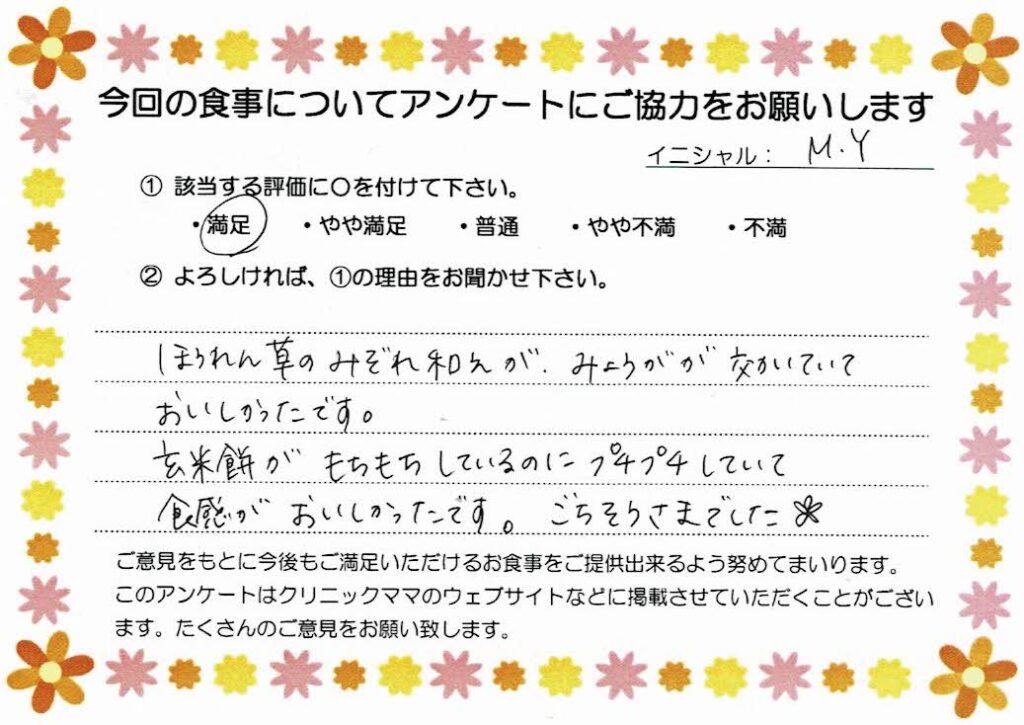 今回の食事についてアンケートにご協力をお願いします
イニシャル： M.Y
① 該当する評価に〇を付けて下さい。
・満足 ・やや満足 ・普通 ・やや不満 ・不満
② よろしければ、①の理由をお聞かせ下さい。
ほうれん草のみぞれ和えが、みょうがが効いていて
おいしかったです。
玄米餅がもちもちしているのにプチプチしていて
食感がおいしかったです。ごちそうさまでした
ご意見をもとに今後もご満足いただけるお食事をご提供出来るよう努めてまいります。
このアンケートはクリニックママのウェブサイトなどに掲載させていただくことがござい
ます。たくさんのご意見をお願い致します。